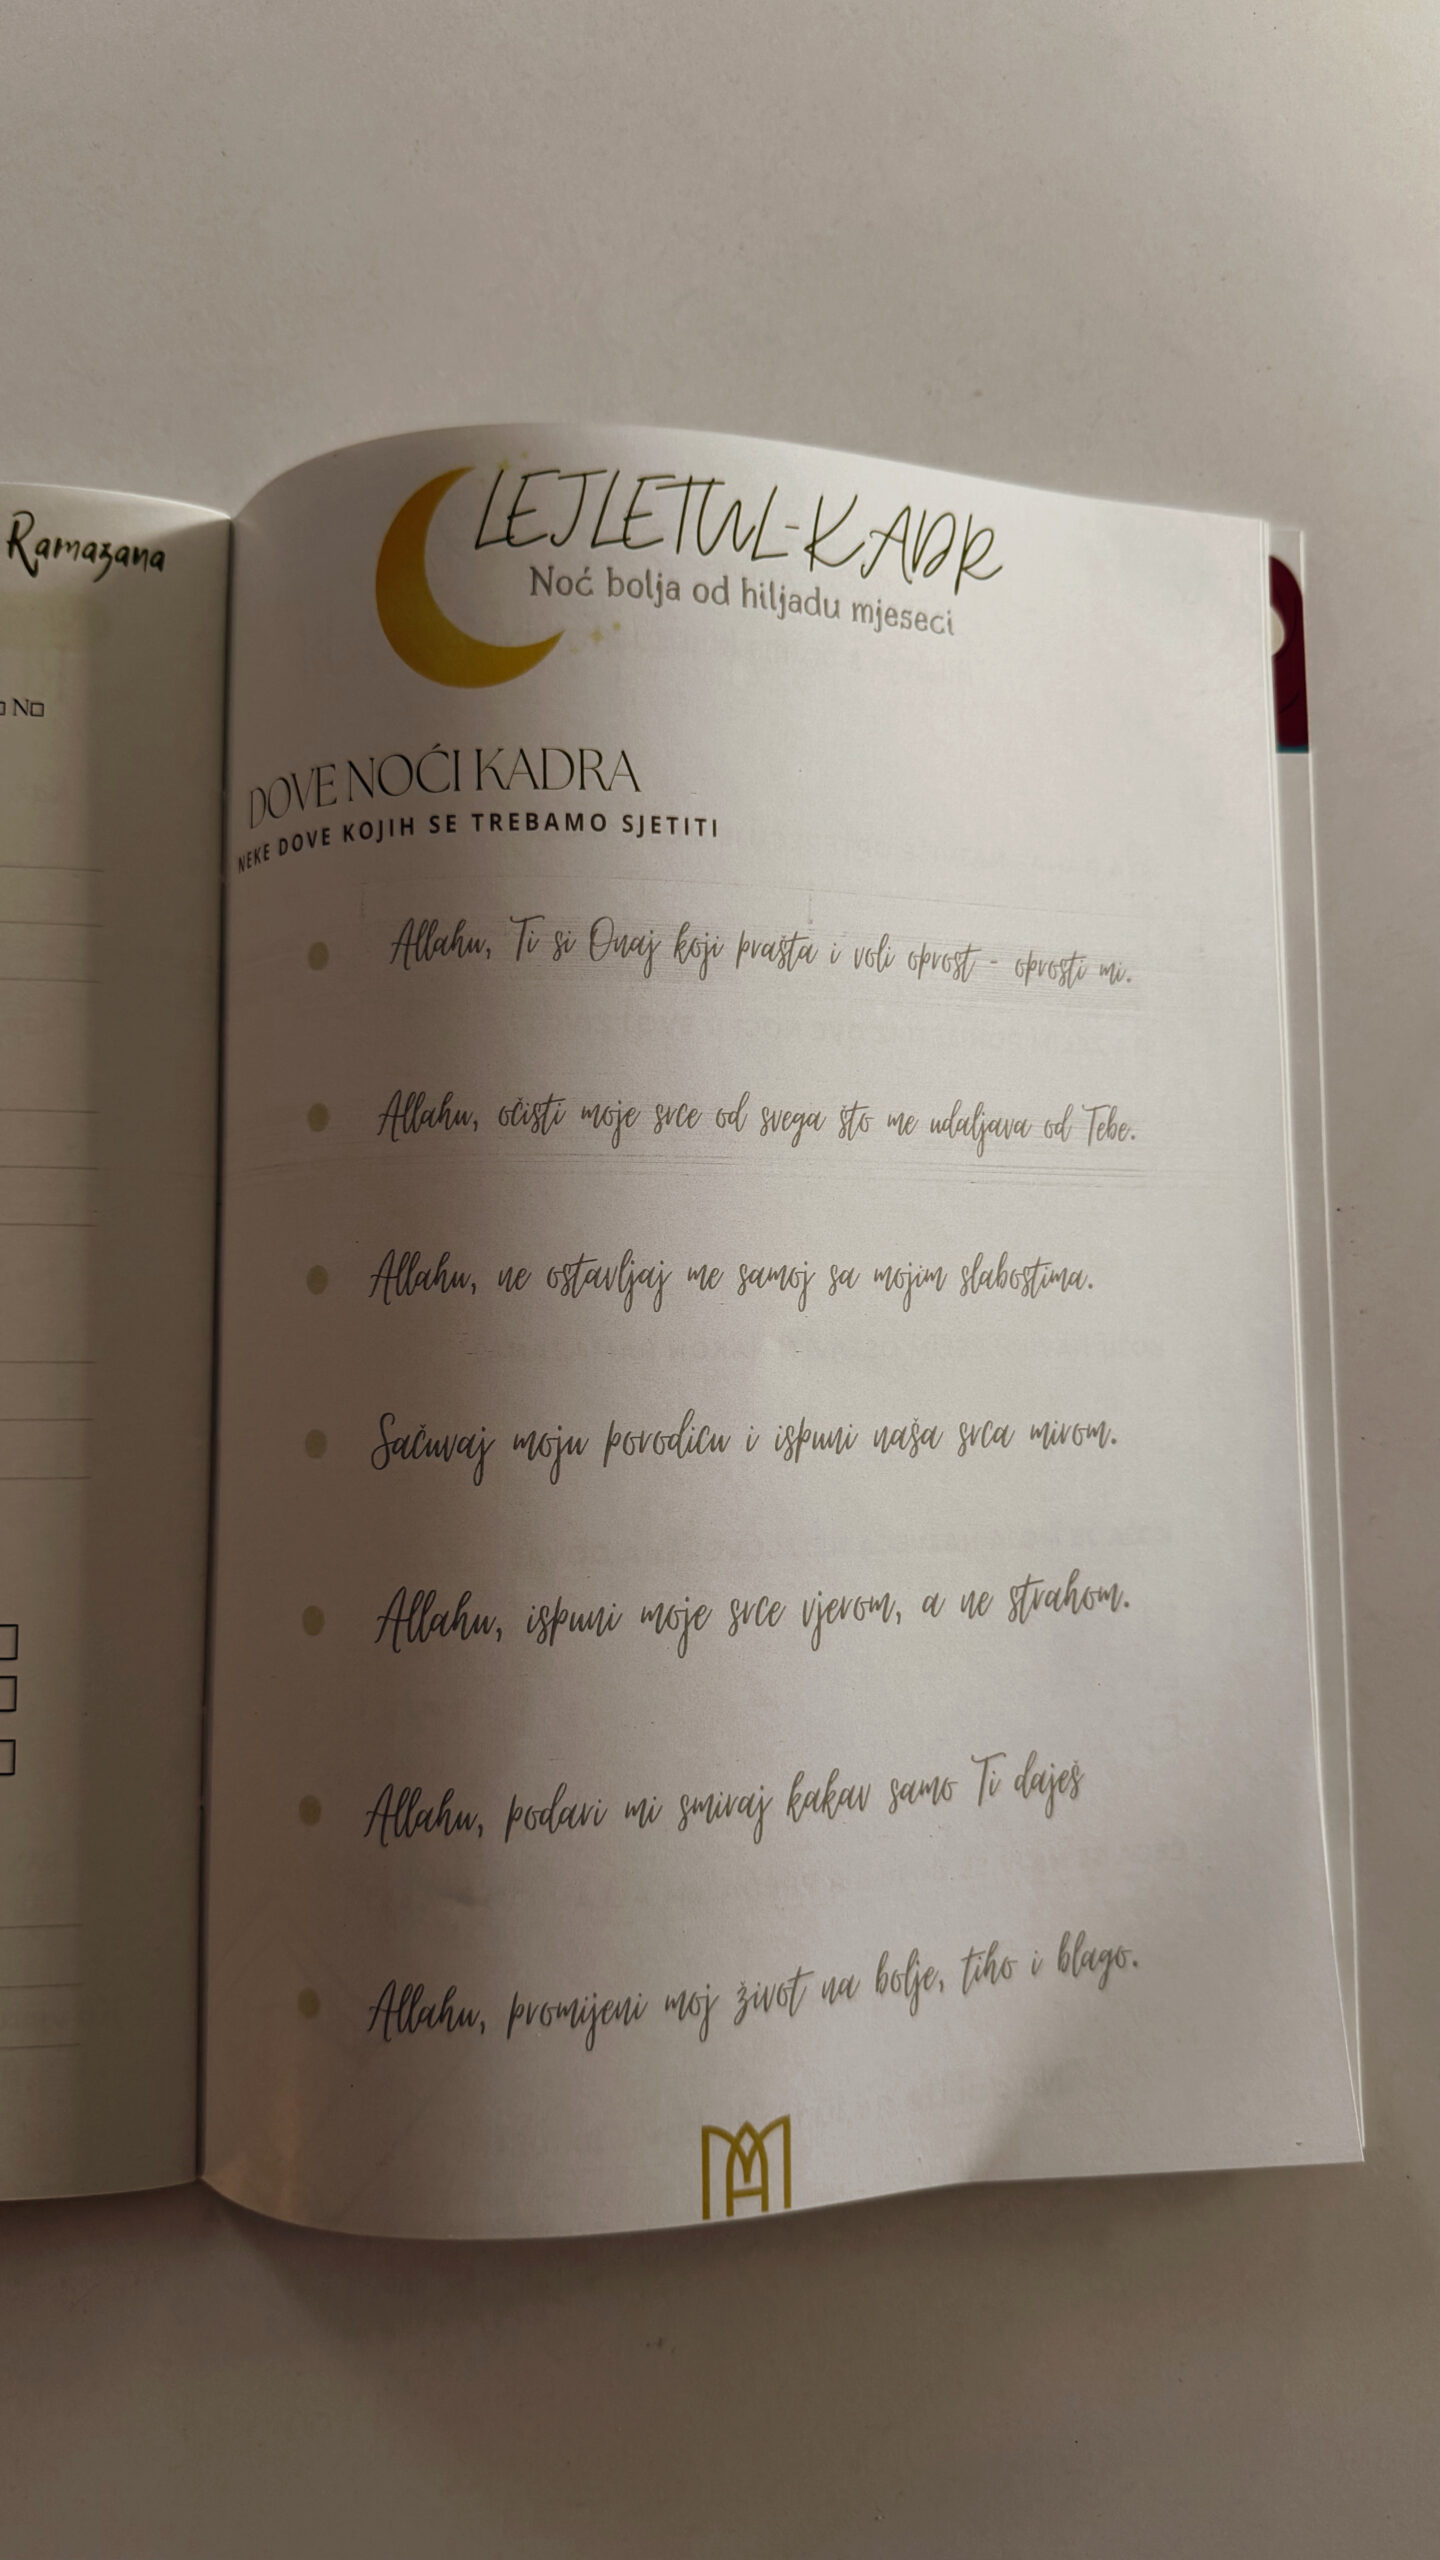 Ramazana
No
LEJLETUL-KADR
Noć bolja od hiljadu mjeseci
DOVE NOĆI KADRA
NEKE DOVE KOJIH SE TREBAMO SJETITI
Allahu, Ti si Onaj koji prašta i voli oprost - oprosti mi.
Allahu, očisti moje srce od svega što me udaljava od Tebe.
Allahu, ne ostavljaj me samoj sa mojim slabostima.
Sačuvaj moju porodicu i ispuni naša srca mirom.
Allahu, ispuni moje srce vjerom, a ne strahom.
Allahu, podari mi smiraj kakav samo Ti daješ
Allahu, promijeni moj život na bolje, tiho i blago.